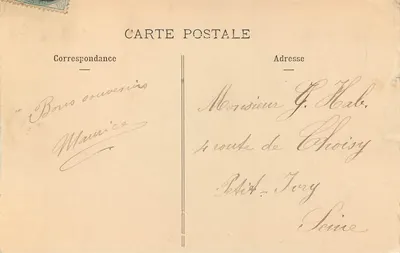 CARTE POSTALE
Correspondance
Adresse
Bons souvenirs
Maurice
Monsieur G. Hab.
4 route de Choisy
Petit-Ivry
Seine